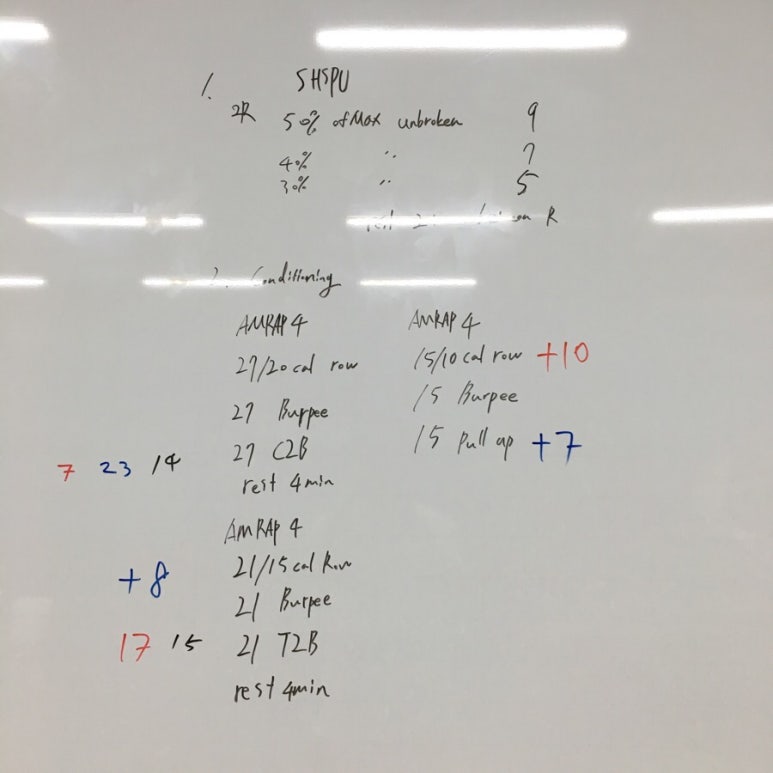 1. SHSPU
2R 50% of Max unbroken 9
40% " 7
30% " 5
R
2. Conditioning
AMRAP 4
27/20 cal row
27 Burpee
7 23 14 27 C2B
rest 4min
AMRAP 4
+8 21/15 cal Row
21 Burpee
17 15 21 T2B
rest 4min
AMRAP 4
15/10 cal row +10
15 Burpee
15 Pull up +7